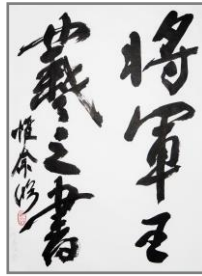 將軍王
羲之書